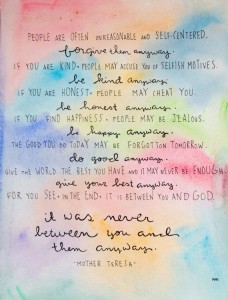 PEOPLE ARE OFTEN UNREASONABLE AND SELF-CENTERED.
forgive them anyway.
IF YOU ARE KIND • PEOPLE MAY ACCUSE YOU OF SELFISH MOTIVES.
be kind anyway.
IF YOU ARE HONEST • PEOPLE MAY CHEAT YOU.
be honest anyway.
IF YOU FIND HAPPINESS • PEOPLE MAY BE JEALOUS.
be happy anyway.
THE GOOD YOU DO TODAY MAY BE FORGOTTON TOMORROW.
do good anyway.
GIVE THE WORLD THE BEST YOU HAVE AND IT MAY NEVER BE ENOUGH.
give your best anyway.
FOR YOU SEE • IN THE END • IT IS BETWEEN YOU AND GOD.
it was never
between you and
them anyway.
-MOTHER TERESA-